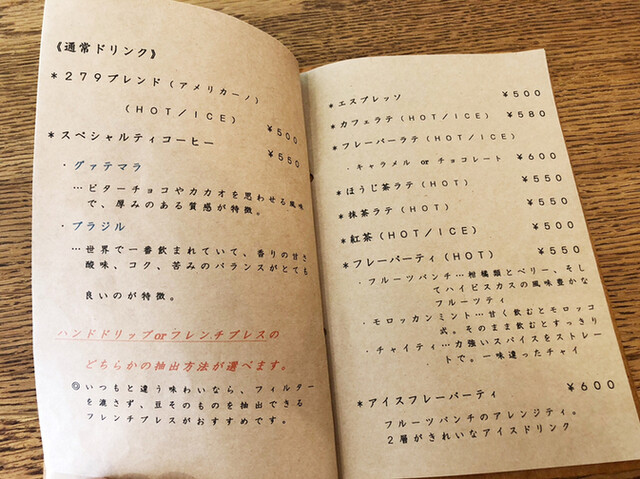 《通常ドリンク》
＊２７９ブレンド（アメリカーノ）
（ＨＯＴ／ＩＣＥ）
￥５００
＊スペシャルティコーヒー
￥５５０
・グァテマラ
…ビターチョコやカカオを思わせる風味
で、厚みのある質感が特徴。
・ブラジル
…世界で一番飲まれていて、香りの甘さ
酸味、コク、苦みのバランスがとても
良いのが特徴。
ハンドドリップorフレンチプレスの
どちらかの抽出方法が選べます。
◎いつもと違う味わいなら、フィルター
を濾さず、豆そのものを抽出できる
フレンチプレスがおすすめです。
＊エスプレッソ ￥５００
＊カフェラテ（ＨＯＴ／ＩＣＥ） ￥５８０
＊フレーバーラテ（ＨＯＴ／ＩＣＥ）
・キャラメル or チョコレート ￥６００
＊ほうじ茶ラテ（ＨＯＴ） ￥５５０
＊抹茶ラテ（ＨＯＴ） ￥５５０
＊紅茶（ＨＯＴ／ＩＣＥ） ￥５００
＊フレーバーティ（ＨＯＴ） ￥５５０
・フルーツパンチ…柑橘類とベリー、そし
てハイビスカスの風味豊かな
フルーツティ
・モロッカンミント…甘く飲むとモロッコ
式。そのまま飲むとすっきり
・チャイティ…力強いスパイスをストレー
トで。一味違ったチャイ
＊アイスフレーバーティ ￥６００
フルーツパンチのアレンジティ。
２層がきれいなアイスドリンク